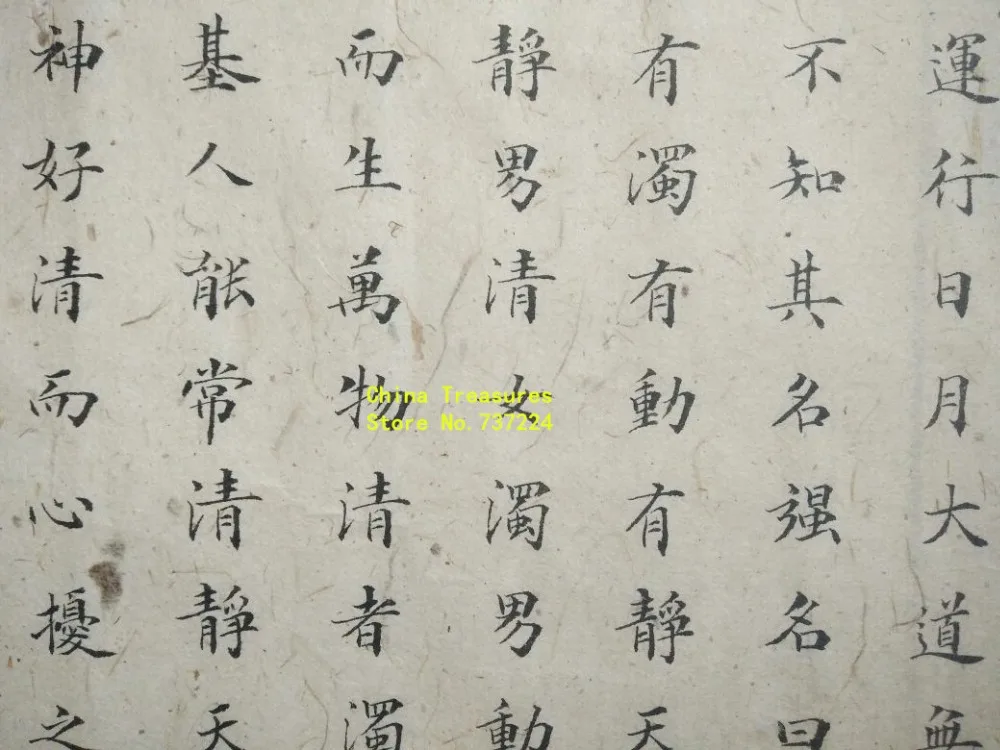 運行日月大道無
不知其名强名曰
有濁有動有靜天
靜男清女濁男動
而生萬物清者濁
基人能常清靜天
神好清而心擾之
China Treasures
Store No.737224